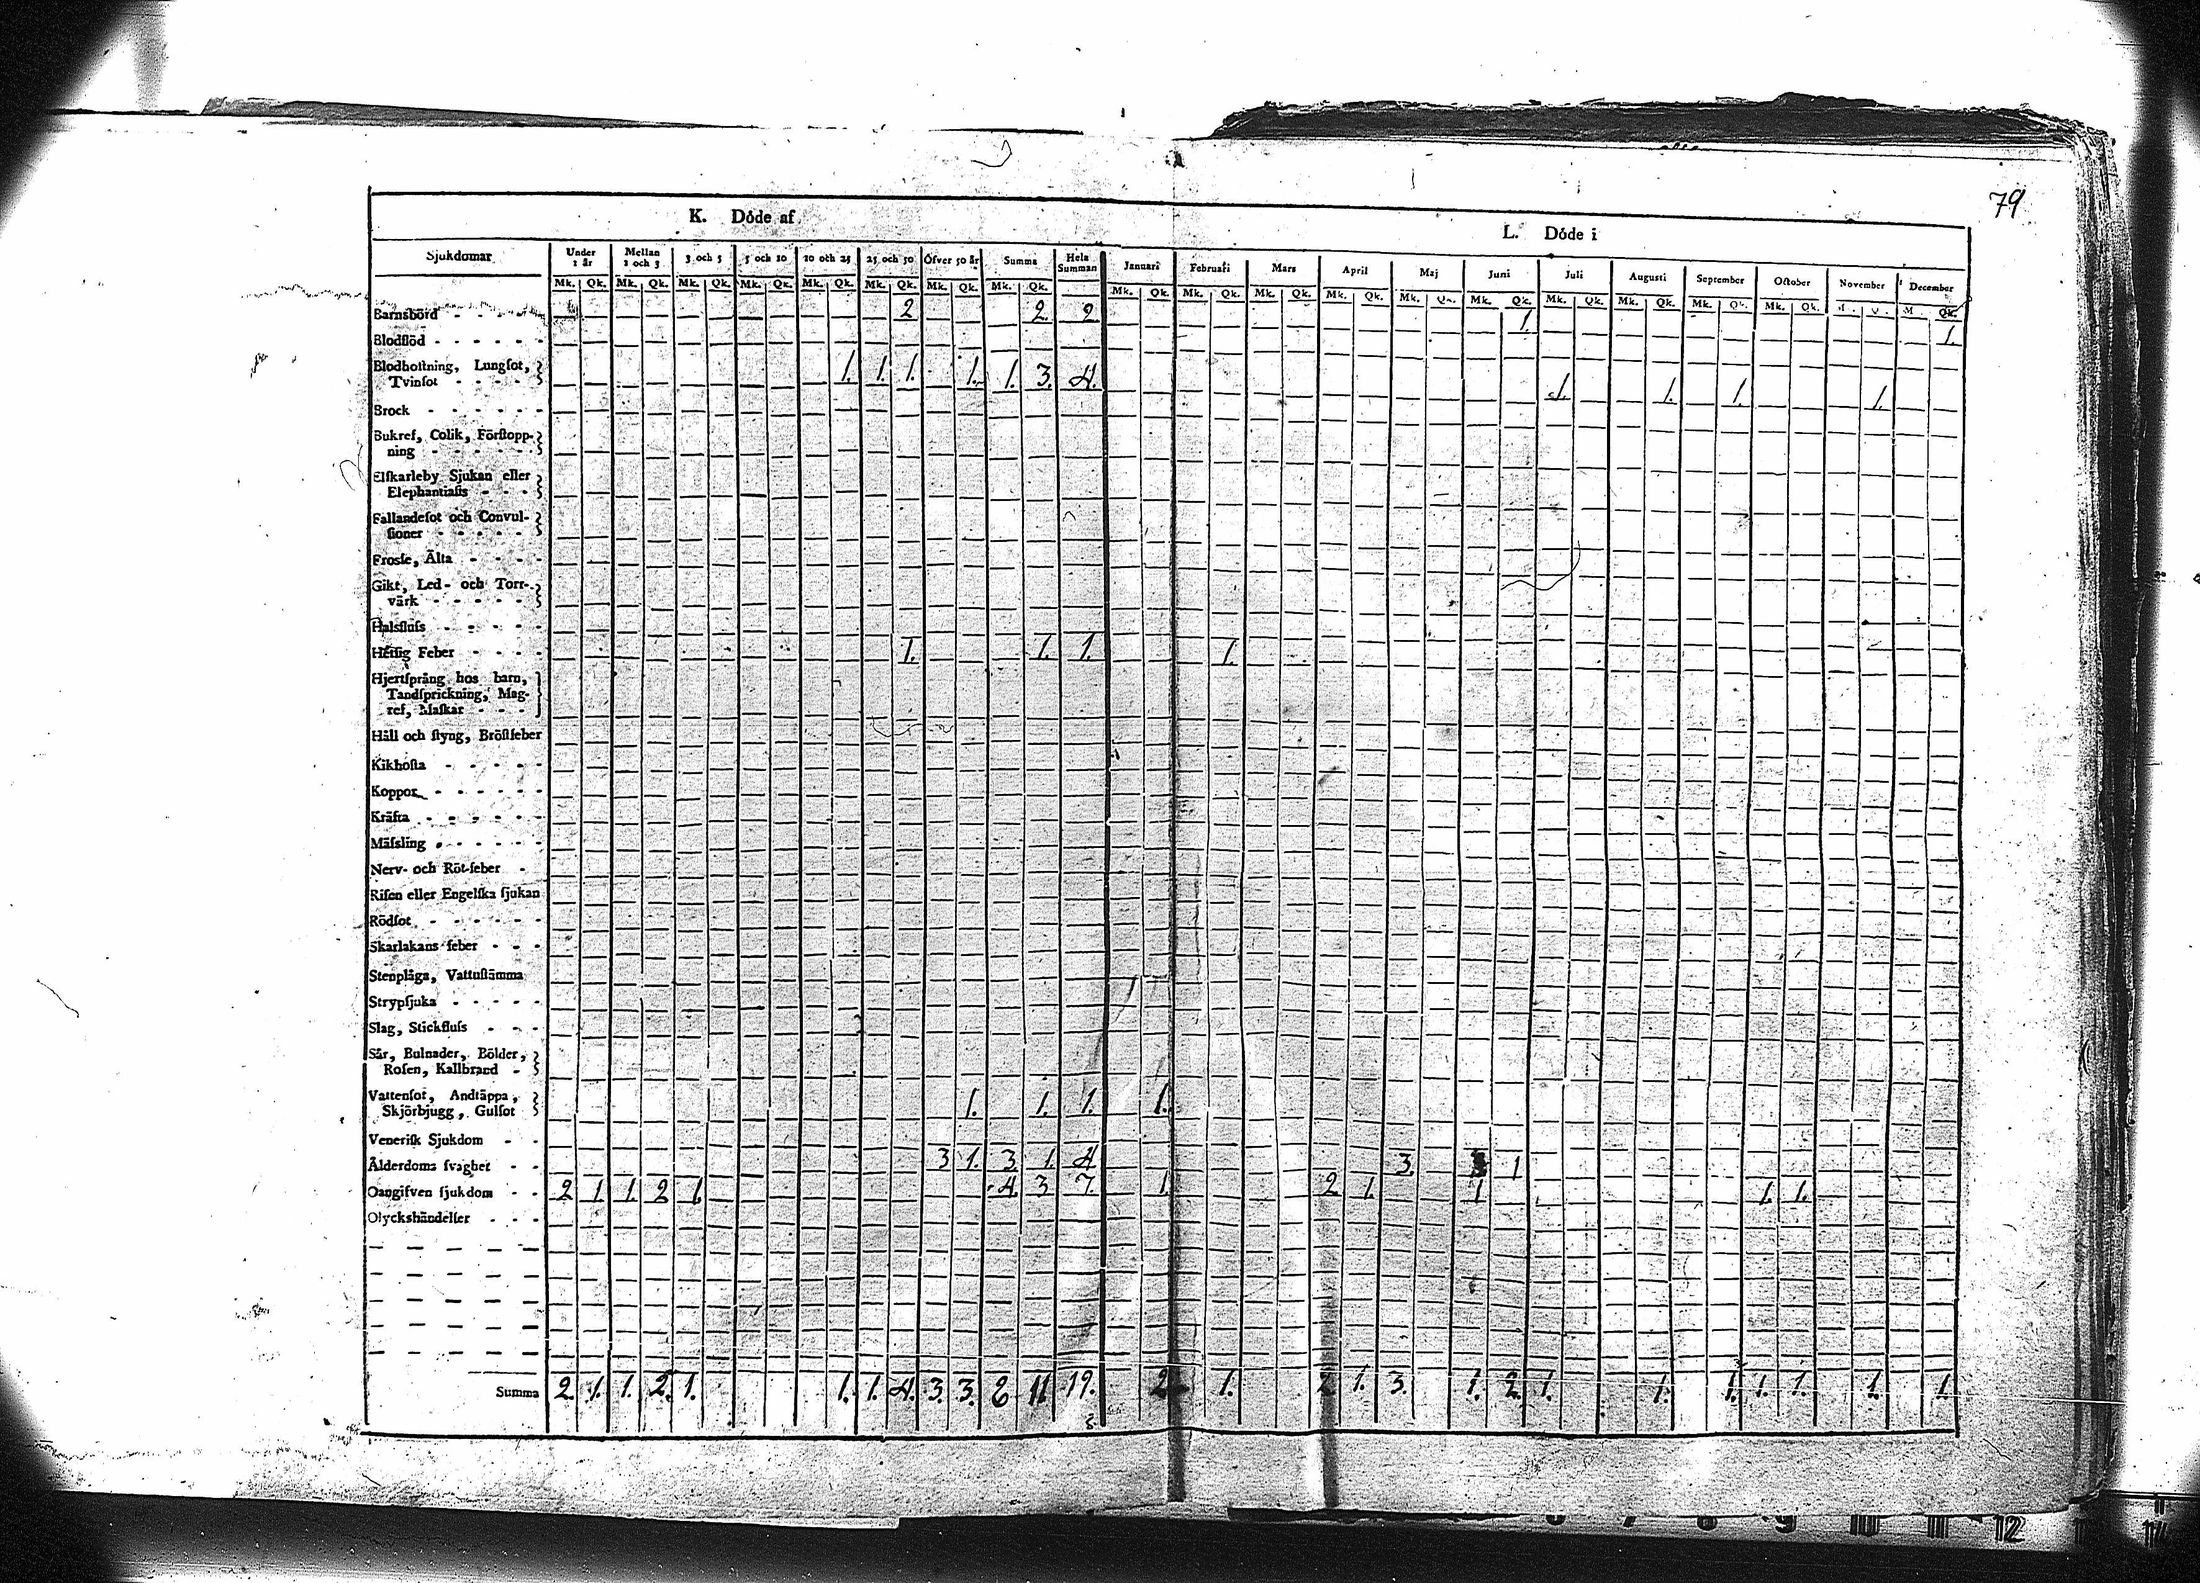 79
K. Dóde af. L. Dóde i
Sjukdomar Under 1 år Mellan 1 och 3 3 och 5 5 och 10 10 och 25 25 och 50 Öfver 50 år Summa Hela Summan Januari Februari Mars April Maj Juni Juli Augusti September October November December
Mk. Qk. Mk. Qk. Mk. Qk. Mk. Qk. Mk. Qk. Mk. Qk. Mk. Qk. Mk. Qk. Mk. Qk. Mk. Qk. Mk. Qk. Mk. Qk. Mk. Qk. Mk. Qk. Mk. Qk. Mk. Qk. Mk. Qk. Mk. Qk.
Barnsbörd - - - - 2 2. 2 1. 1.
Blodflöd - - - - - -
Blodhoſtning, Lungſot,
Tvinſot - - - - 1. 1. 1. 1. 1. 3. 4. 1. 1. 1. 1.
Brock - - - - - -
Bukref, Colik, Förſtopp-
ning - - - - - -
Elſkarleby Sjukan eller
Elephantiaſis - - - -
Fallandeſot och Convul-
ſioner - - - - -
Froſſe, Älta - - - -
Gikt, Led- och Torr-
värk - - - - -
Halsfluſs - - - - -
Hetſig Feber - - - - 1. 1. 1. 1.
Hjertſprång hos barn,
Tandſprickning, Mag-
ref, Maſkar - - -
Håll och ſtyng, Bröſtfeber
Kikhoſta - - - - -
Koppor - - - - - -
Kräfta - - - - - -
Mäſsling - - - - - -
Nerv- och Röt-feber -
Riſen eller Engelſka ſjukan
Rödſot - - - - - -
Skarlakans feber - - -
Stenplåga, Vattuſtämma
Strypſjuka - - - - -
Slag, Stickfluſs - - -
Sår, Bulnader, Bölder,
Roſen, Kallbrand -
Vattenſot, Andtäppa,
Skjörbjugg, Gulſot 1. 1. 1. 1.
Veneriſk Sjukdom - -
Ålderdoms ſvaghet - - 3 1. 3 1 4 3. 1
Oangifven ſjukdom - - 2 1. 1. 2 1. 4. 3 7. 1. 2 1. 1 1. 1.
Olyckshändelſer - - -
Summa 2. 1. 1. 2. 1. 1. 1. 4. 3. 3. 8 11 19. 2 1. 2 1. 3. 1. 2. 1. 1. 1. 1. 1. 1. 1.
7 8 9 10 11 12